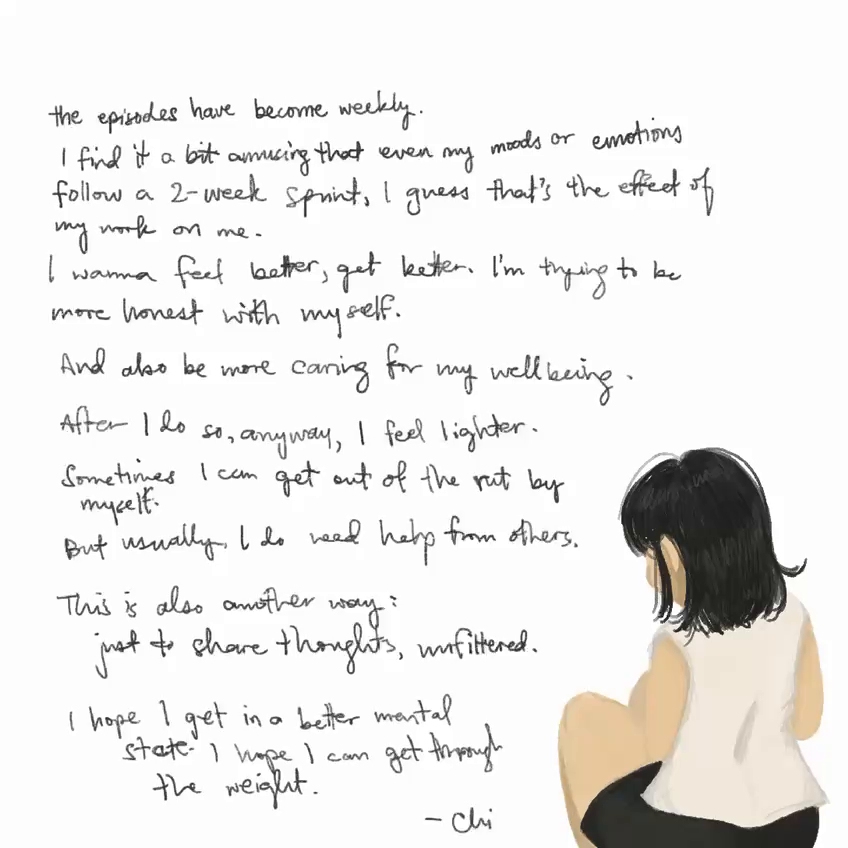 the episodes have become weekly.
I find it a bit amusing that even my moods or emotions
follow a 2-week sprint, I guess that's the effect of
my work on me.
I wanna feel better, get better. I'm trying to be
more honest with myself.
And also be more caring for my wellbeing.
After I do so, anyway, I feel lighter.
Sometimes I can get out of the rut by
myself.
But usually, I do need help from others.
This is also another way:
just to share thoughts, unfiltered.
I hope I get in a better mental
state. I hope I can get through
the weight.
- Chi